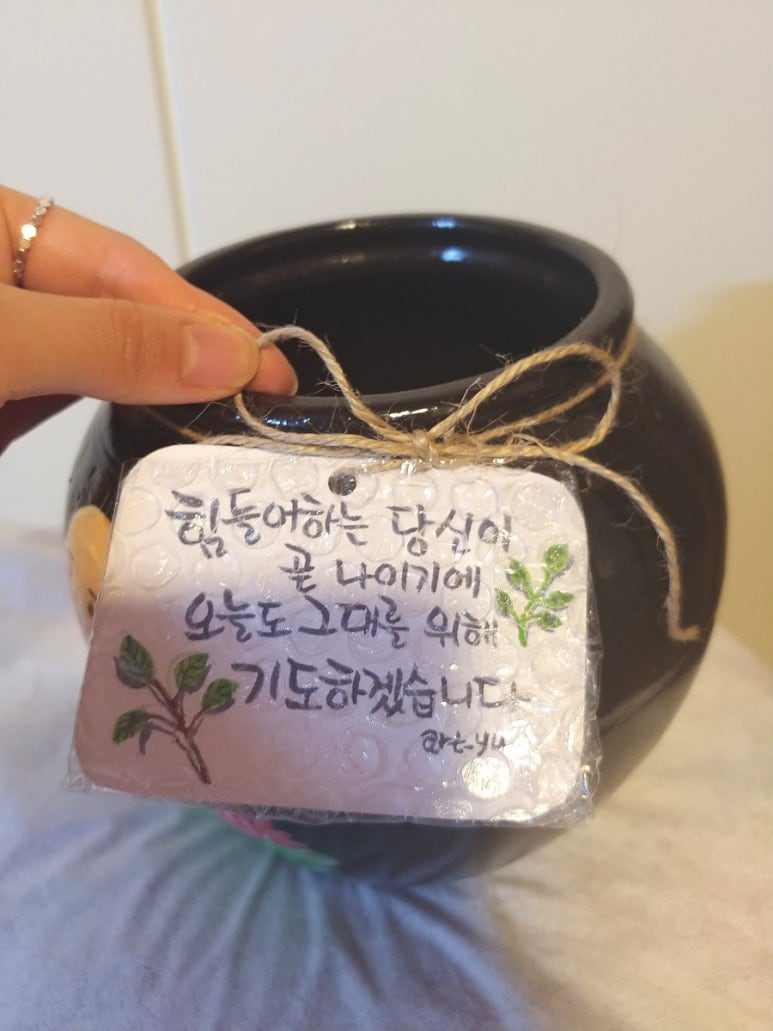 힘들어하는 당신이
곧 나이기에
오늘도 그대를 위해
기도하겠습니다
art-yu